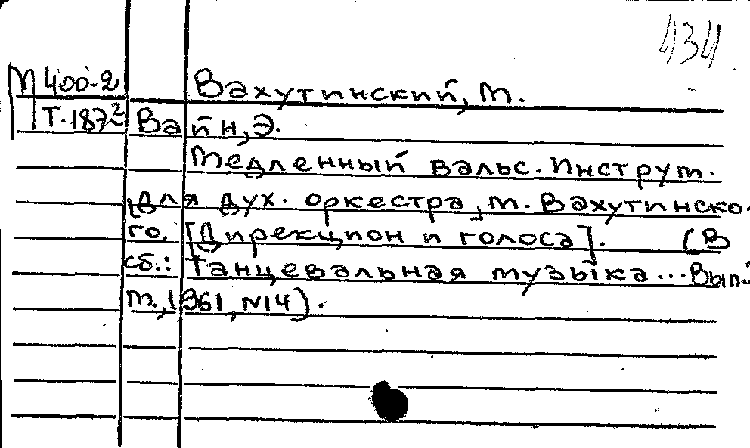 434.
М 400-2 Вахутинский, М.
Т-187² Вайн, Э.
Медленный вальс. Инструм.
для дух. оркестра, М. Вахутинско-
го. [Дирекцион и голоса]. (В
сб.: Танцевальная музыка... Вып.
М., 1961, №14).